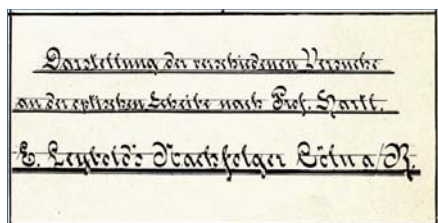 Darstellung der verschiedenen Versuche
an der optischen Scheibe nach Prof. Hartl.
E. Leybold's Nachfolger Cöln a/R.